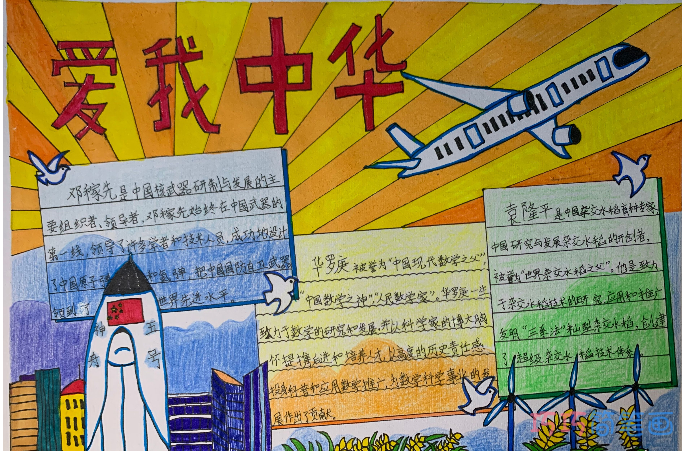 爱我中华
邓稼先是中国核武器研制与发展的主
要组织者、领导者,邓稼先始终在中国武器的
第一线,领导了许多学者和技术人员,成功地设计
了中国原子弹 氢弹,把中国国防自卫武器
领到了 世界先进水平。
神 五
舟 号
华罗庚 被誉为“中国现代数学之父”
中国数学之神”“人民数学家”。华罗庚一生
致力于数学的研究和发展,并以科学家的博大胸
怀提携后进和培养人才,以高度的历史责任感
投身科普和应用数学推广,为数学科学事业的发
展作出了贡献
袁隆平 是中国杂交水稻育种专家,
中国研究与发展杂交水稻的开创者,
被誉为“世界杂交水稻之父”。他是致力
于杂交水稻技术的研究、应用和推广
发明“三系法”籼型杂交水稻,创建
了 超级杂交水稻技术体系。